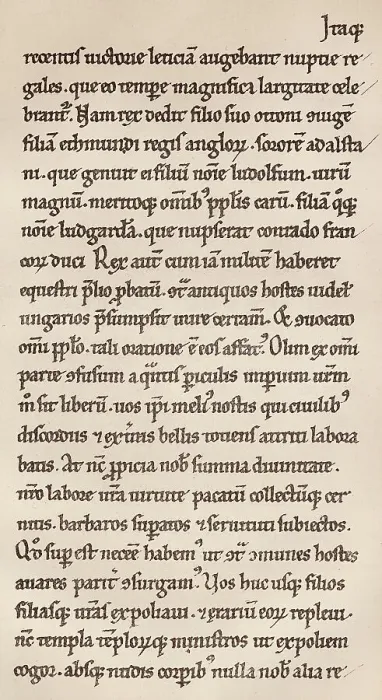 Itaq;
recentis uictorie leticiā augebant nuptie re/
gales. que eo tempe magnifica largitate cele/
brant᷑. Nam rex dedit filio suo ottoni ꝯiugē
filiā ethmundi regis angloꝝ. sororē adalsta/
ni. que genuit ei filiū noīe liudolfum. uirū
magnū. meritoq; omīb᷒ pplīs carū. filiā qq;
noīe liudgardā. que nupserat conrado fran/
coꝝ duci Rex autē cum iā militē haberet
equestri plio pbatū. ꝯt̄ antiquos hostes uidel
ungarios psumpsit inire certam̄. Et ꝯuocato
omī pplo. tali oratione ē eos affat᷒. Olim ex omī
parte ꝯfusum a q̄ntis piculis imperium urm̄
m̄ sit liberū. uos ipi meli᷒ nostis qui ciuilib᷒
discordiis ⁊ ext̄nis bellis totiens attriti labora
batis. At nc̄ ꝓpicia nob̄ summa diuinitate.
nr̄o labore ur̄a uirtute pacatū collectūq; cer
nitis. barbaros supatos ⁊ seruituti subiectos.
Qd̓ sup est necēē habem᷒ ut ꝯt̄ ꝯmunes hostes
auares parit̄ ꝯsurgam᷒. Vos huc usq; filios
filiasq; ur̄as expoliaui. ⁊ erariū eoꝝ repleui.
nc̄ templa tēploꝝq; ministros ut expoliem
cogor. absq; nudis corpib᷒ nulla nob̄ alia re/